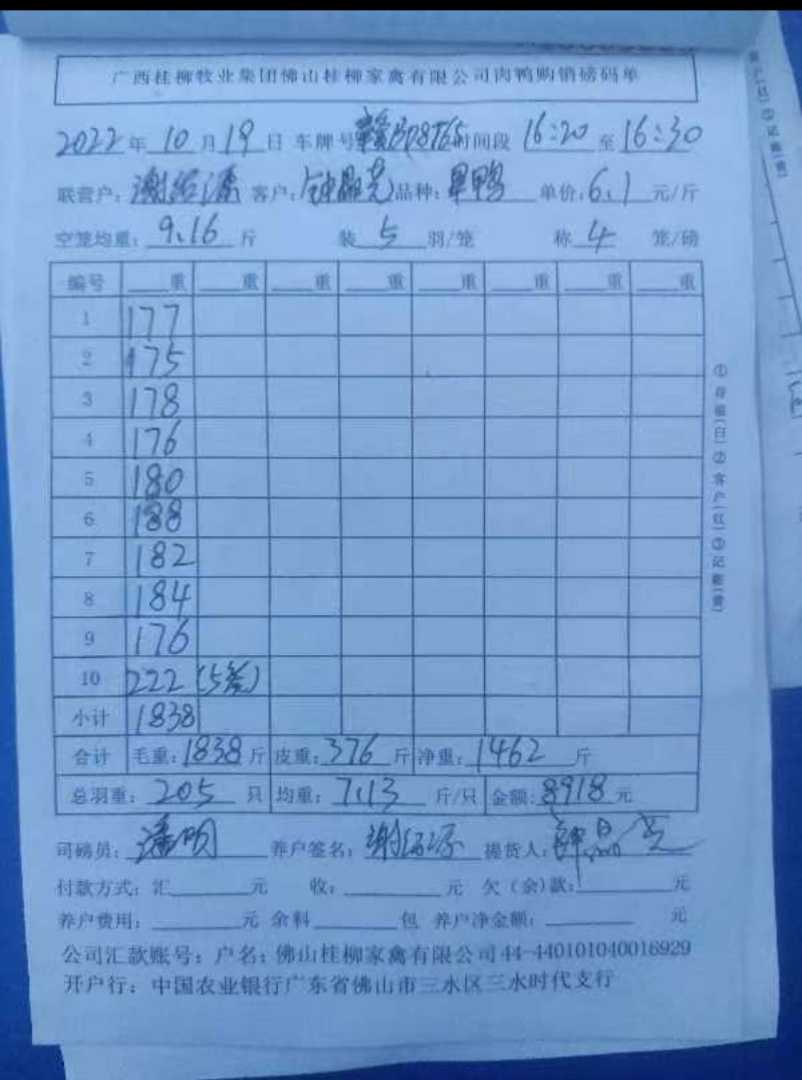 广西桂柳牧业集团佛山桂柳家禽有限公司肉鸭购销磅码单
2022年10月19日 车牌号 时间段 16:20 至 16:30
联营户: 谢绍源 客户: 品种: 旱鸭 单价: 6.1 元/斤
空笼均重: 9.16 斤 装 5 羽/笼 称 4 笼/磅
编号 重 重 重 重 重 重 重 重
1 177
2 175
3 178
4 176
5 180
6 188
7 182
8 184
9 176
10 222 (5笼)
小计 1838
合计 毛重: 1838 斤 皮重: 376 斤 净重: 1462 斤
总羽重: 205 只 均重: 7.13 斤/只 金额: 8918 元
司磅员: 潘明 养户签名: 谢绍源 提货人:
付款方式: 汇 元 收: 元 欠(余)款: 元
养户费用: 元 余料 包 养户净金额: 元
公司汇款账号: 户名: 佛山桂柳家禽有限公司44-440101040016929
开户行: 中国农业银行广东省佛山市三水区三水时代支行
①存根(白)②客户(红)③记账(黄)